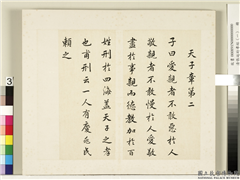 天子章第二
子曰愛親者不敢惡於人
敬親者不敢慢於人愛敬
盡於事親而德教加於百
姓刑於四海蓋天子之孝
也甫刑云一人有慶兆民
賴之
3